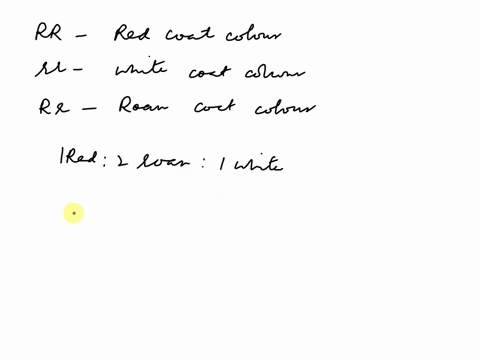 RR - Red coat colour
rr - white coat colour
Rr - Roan coat colour
1 Red : 2 roan : 1 white